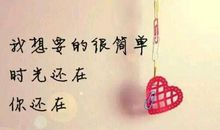 我想要的很简单
时光还在
你还在